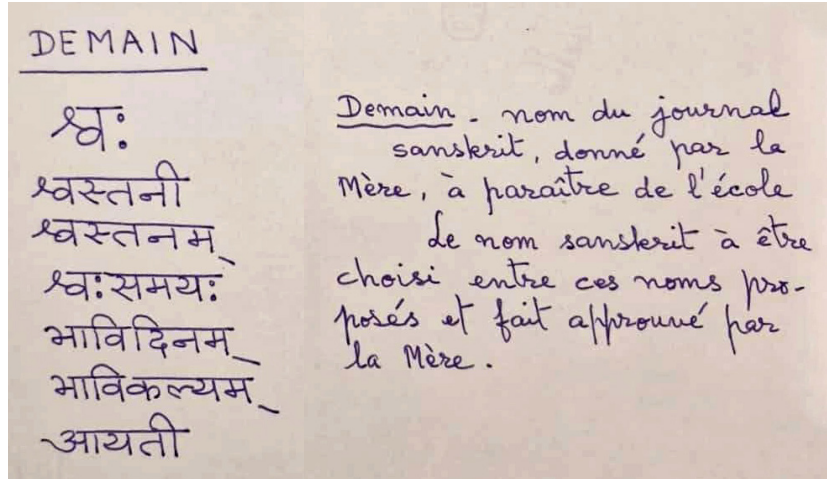 DEMAIN
श्वः
श्वस्तनी
श्वस्तनम्
श्वःसमयः
भाविदिनम्
भाविकल्यम्
आयती
Demain - nom du journal
sanskrit, donné par la
Mère, à paraître de l'école
Le nom sanskrit à être
choisi entre ces noms pro-
posés et fait approuvé par
la Mère.